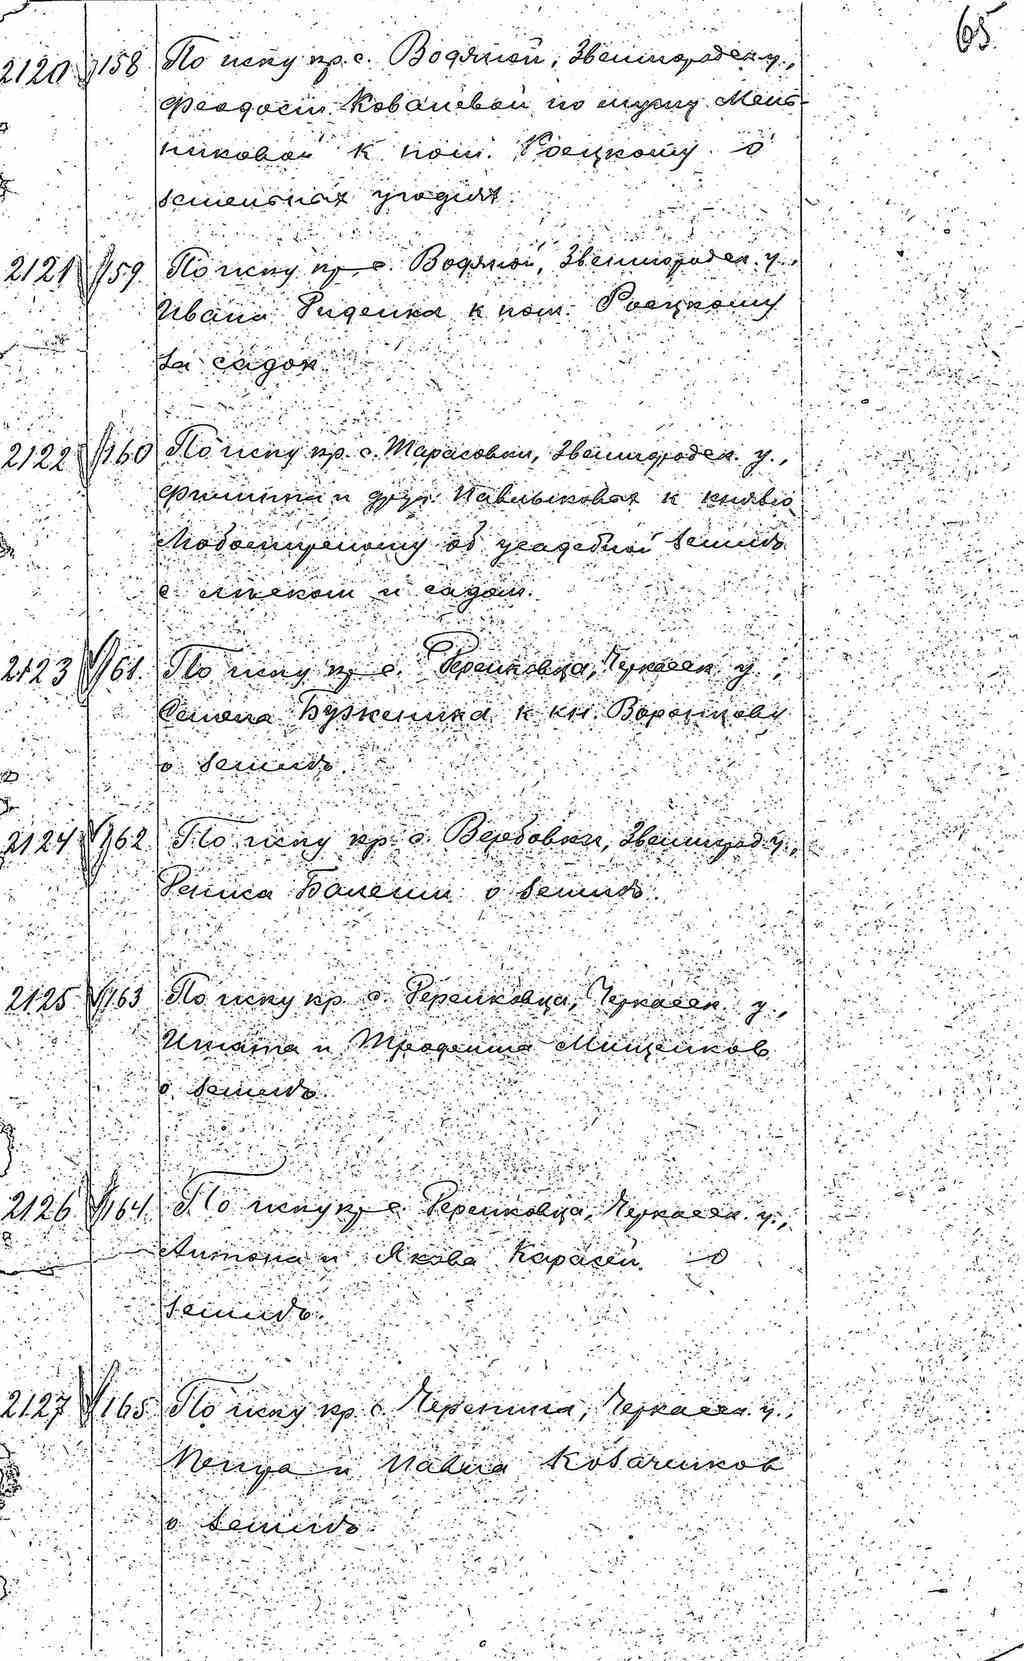 65
2120 158 По иску кр. с. Водяной, Звенигородск. у.,
Феодосии Ковалевой по мужу Мель-
никовой к пом. Роецкому о
земельных угодиях
2121 159 По иску кр. с. Водяной, Звенигородск. у.
Ивана Гиденка к пом. Роецкому
за садок
2122 160 По иску кр. с. Тарасовки, Звенигородск. у.,
Филиппа и друг. Павлыковых к князю
Любомирскому об усадебной земле
с леском и садом.
2123 161 По иску кр. с. Геронковца, Черкасск. у.,
Семена Бужениna к кн. Воронцову
о земле.
2124 162 По иску кр. с. Вербовки, Звенигород. у.,
о земле.
2125 163 По иску кр. с. Черкасск. у.,
Игната и Трофима Мищенков
о земле.
2126 164 По иску кр. с. Черкасск. у.,
Антона и Якова Карасей о
земле.
2127 165 По иску кр. с. Черепина, Черкасск. у.,
Петра и Павла Козаченков
о земле.